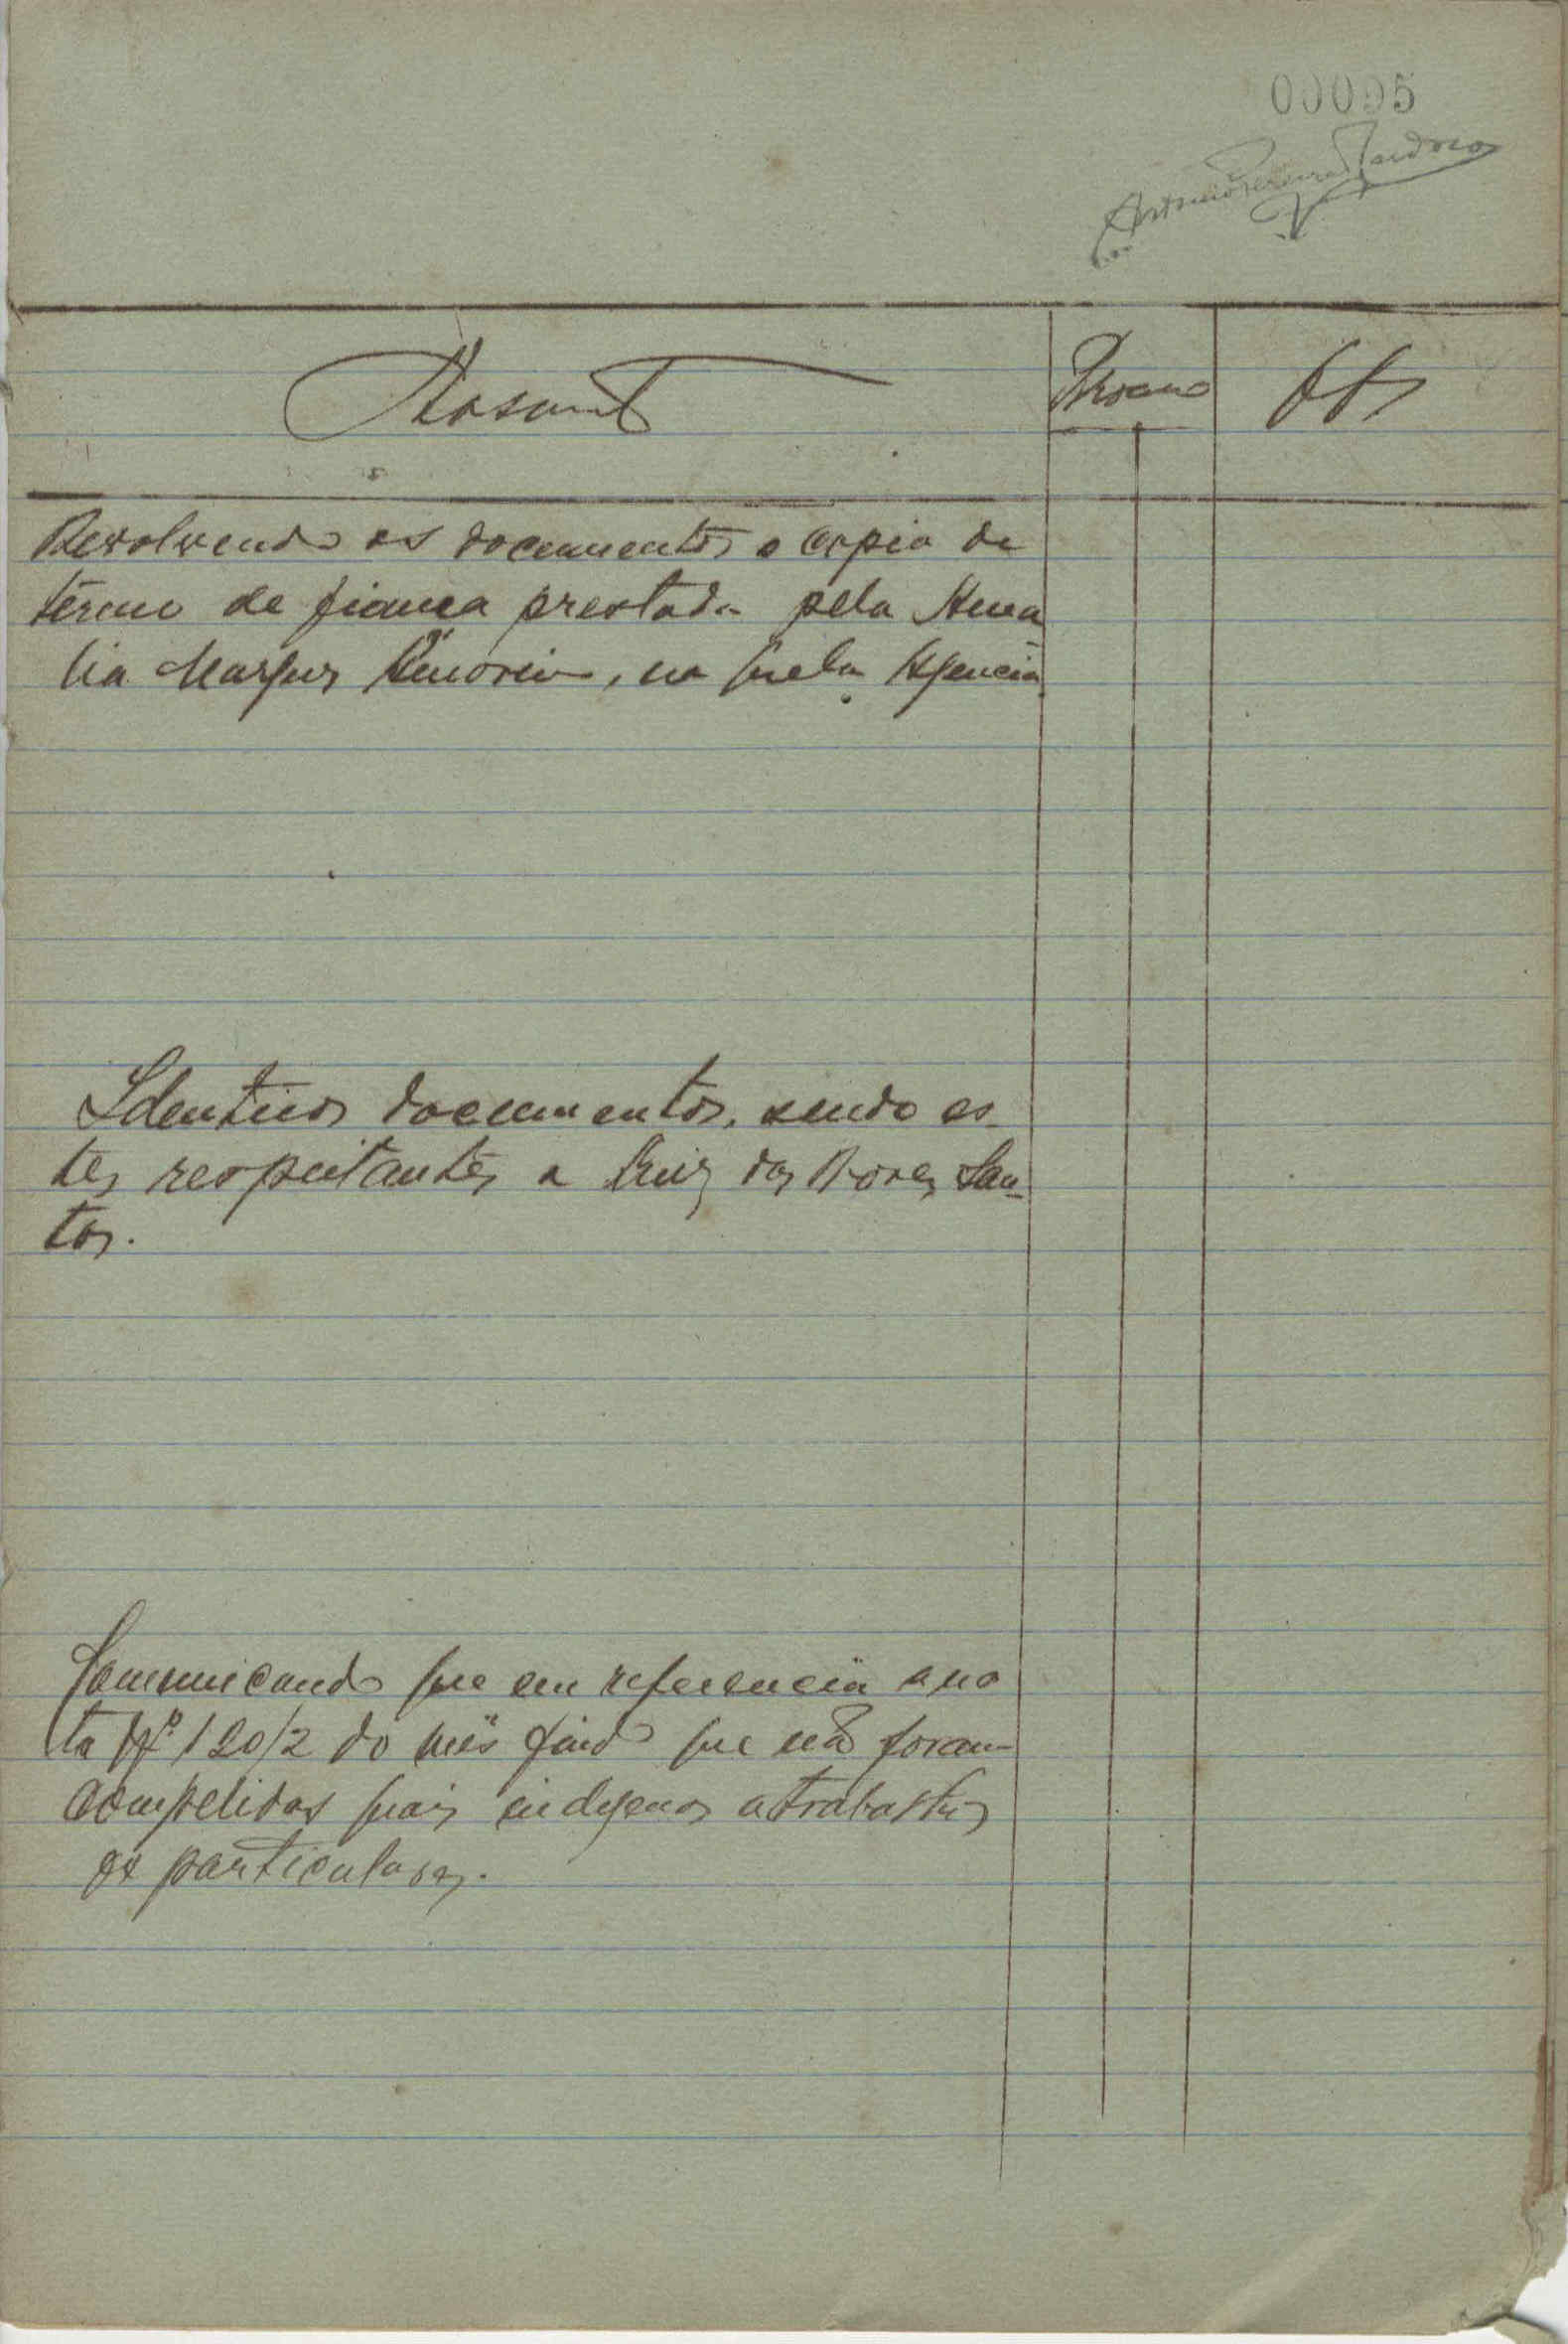 00095
Devolvendo os documentos e copia de
termo de fiança prestada pela Ama
lia Marques Amorim, na quela Agencia
Identicos documentos, sendo es-
tes respeitantes a Luiz das Dores San-
tos.
Communicando que em referencia a no
ta Nº 120/2 do mês findo que não foram
compelidos mais indigenas a trabalhos
particulares.